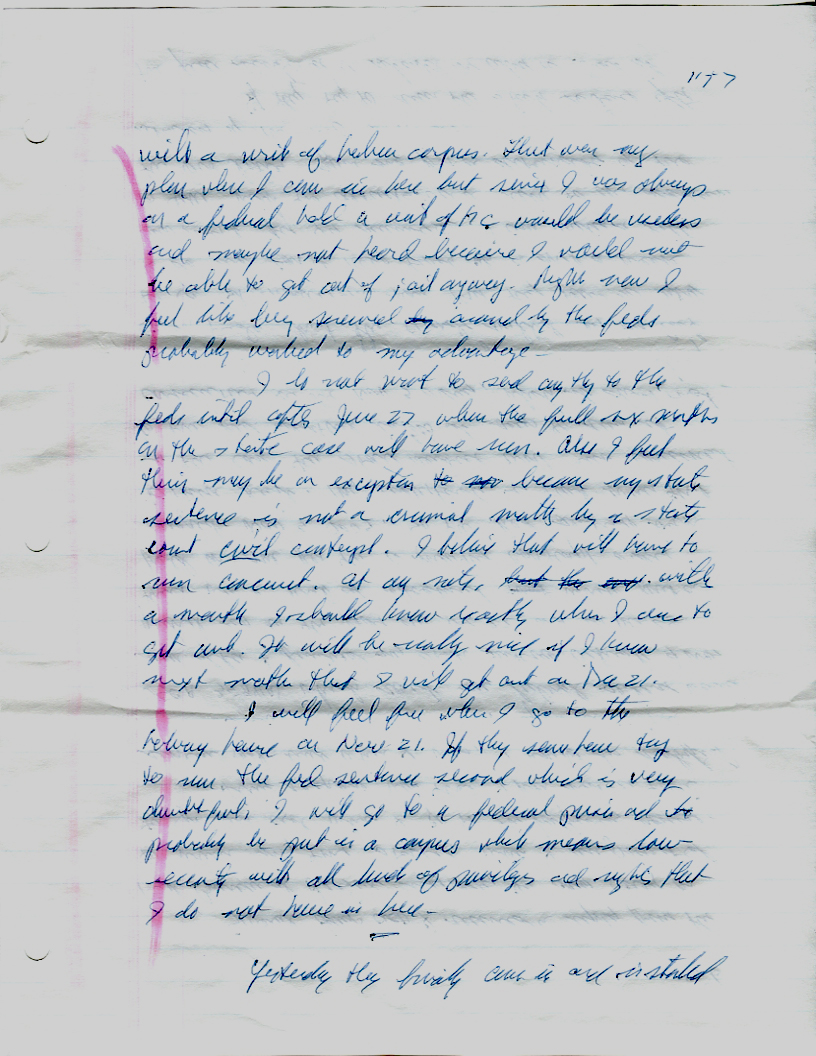 1157
with a writ of habeas corpus. That was my
plan when I came in here but since I was always
on a federal hold a writ of HC would be useless
and maybe not heard because I would not
be able to get out of jail anyway. Right now I
feel like being screwed by around by the feds
probably worked to my advantage –
I do not want to send anything to the
feds until after June 27 when the full six months
on the state case will have run. Also I feel
this may be an exception to because my state
sentence is not a criminal matter by a state
court civil contempt. I believe that will have to
run concurrent. At any rate, but the with
a month I should know exactly when I am to
get out. It will be really nice if I know
next month that I will get out on Dec 21.
I will feel fine when I go to the
halfway house on Nov. 21. If they somehow try
to run the fed sentence second which is very
doubtful, I will go to a federal prison and to
probably be put in a campus which means low
security with all kinds of privileges and rights that
I do not have in here –
Yesterday they finally came in and installed